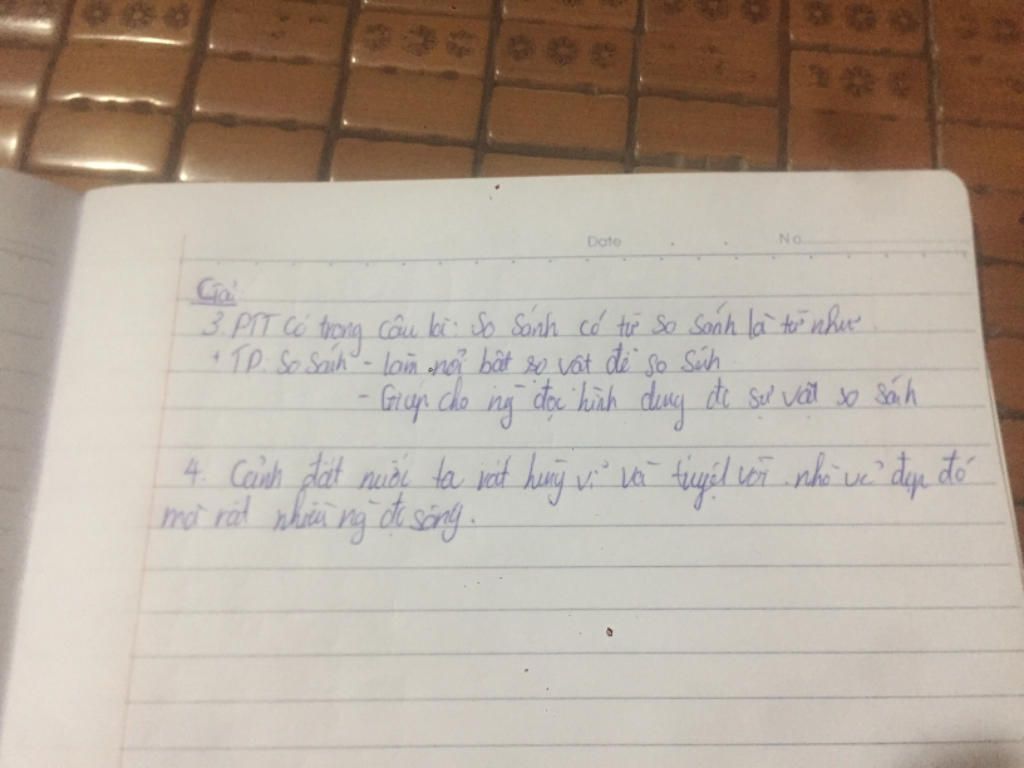 Date No
Giải
3. PTT Có trong câu là: So Sánh có từ so sánh là từ như
+ TD: So Sánh - làm nổi bật sự vật để so sánh
- Giúp cho ng đọc hình dung đc sự vật so sánh
4. Cảnh đất nước ta rất hùng vĩ và tuyệt vời. nhờ vẻ đẹp đó
mà rất nhiều ng đc sống.